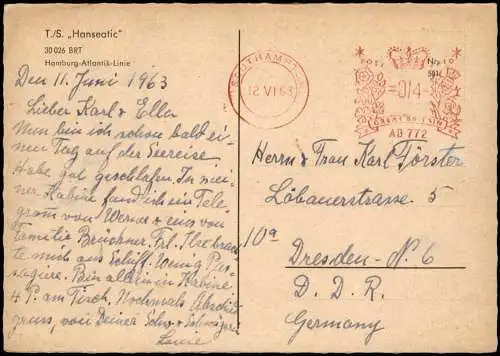 T./S. „Hanseatic"
30 026 BRT
Hamburg-Atlantik-Linie
Den 11. Juni 1963
Lieber Karl & Ella
Nun bin ich schon bald ei-
nen Tag auf der Seereise.
Habe gut geschlafen. In mei-
ner Kabine fand ich ein Tele-
gram von Werner & eins von
Familie Brückner. Frl.
mich aus Schiff. Wenig Pas-
sagiere. Bin allein in Kabine
4 P. am Tisch. Nochmals
gruss, von Deiner Schw. & Schwägerin
SOUTHAMPTON
12 VI 63
=0/4=
AD 772
Herrn & Frau Karl Förster
Löbauerstrasse 5
10a
Dresden - N. 6
D. D. R.
Germany